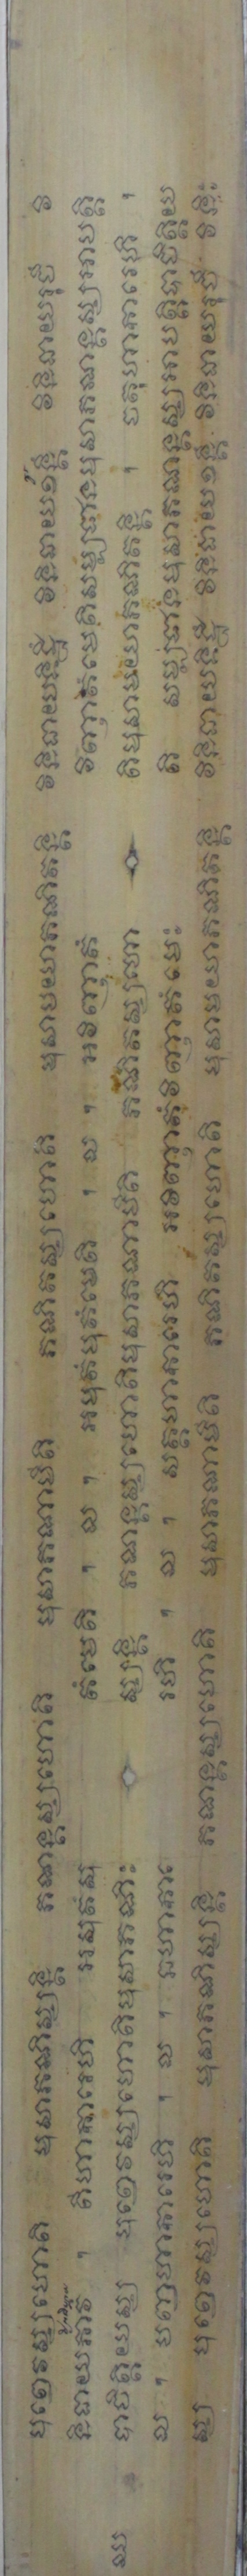 បុព្វេវស្សហោតិ មុសាភណិស្សន្តិ ភណន្តស្សហោតិ មុសាភណាមីតិ ភណិតស្សហោតិ មុសាមយាភណិតន្តិ វិនិធាយទិដ្ឋឹ វិនិធាយខន្តឹ វិនិធាយរុចឹ វិ
និធាយភាវំ ។ តីហាការេហិ អសុតំសុ តំមេតិ ។ ល ។ អមុតំមុតំមេតិ ។ ល ។ អវិញ្ញាតំ វិញ្ញាតំមេតិសម្បជានមុសាភណន្តស្សអាបត្តិ
បាចិត្តិយស្ស បុព្វេវស្សហោតិមុសាភណិះ ស្សន្តិ ភណន្តស្សហោតិមុសាភណាមីតិ ភណិតស្សហោ តិមុសាមយាភណិតន្តិ ។ ចតុហាការេហិ ។
ល ។ បញ្ចហាការេហិ ។ ល ។ ឆហាកា រេហិ ។ ល ។ សត្តហាការេហិ អវិញ្ញាតំវិញ្ញាតំមេះ តិ សម្បជានមុសាភណន្តស្សអាបត្តិបាចិត្តិយ
ស្ស បុព្វេវស្សហោតិ មុសាភណិស្សន្តិ ភណន្តស្សហោតិ មុសាភណាមីតិ ភណិតស្សហោតិ មុសាមយាភណិតន្តិ វិនិធាយទិដ្ឋឹ វិនិធាយខន្តឹ វិនិធាយរុចឹ វិនិះ